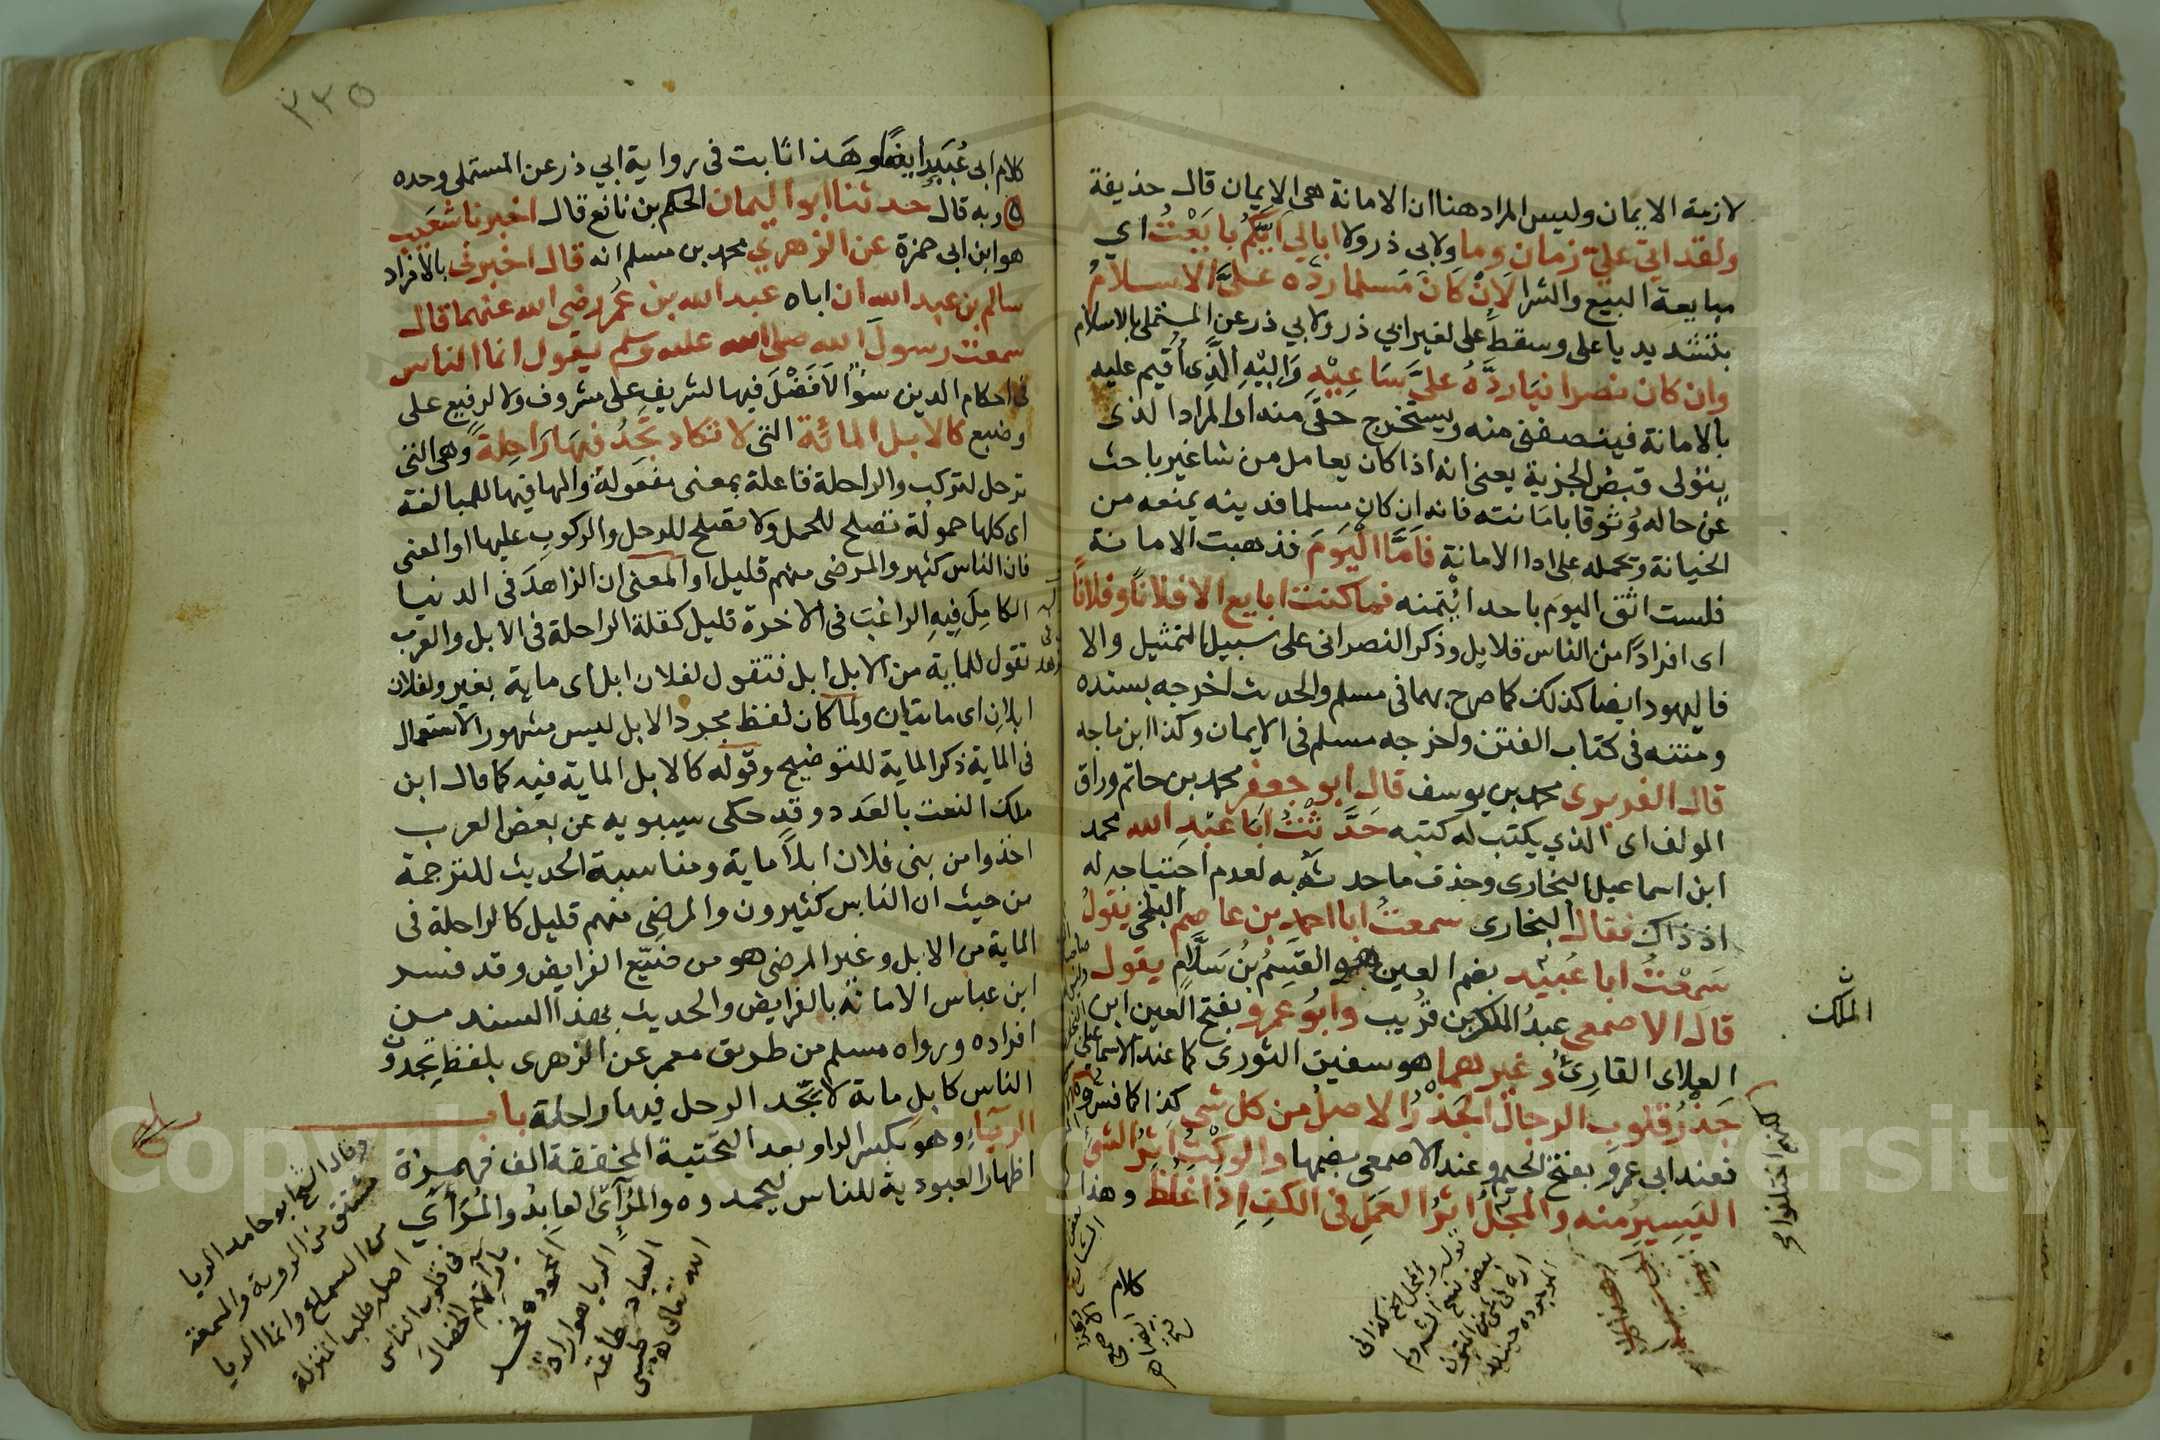 لازمة الايمان وليس المراد هنا ان الامانة هي الايمان قال حذيفة
ولقد اتى عليّ زمان وما ولابي ذر ولا ابالي ايّكم بايعتُ اي
مبايعة البيع والشرا لان كان مسلما رده عليّ الاسلامُ
بتشديد يا على وسقط على لغير ابي ذر ولابي ذر عن المستملي بالاسلام
وان كان نصرانيا ردّهُ عليّ ساعِيْهِ وَاليْهِ الذي أُقيم عليه
بالامانة فينصفني منه ويستخرج حقي منه او المراد الذي
يتولى قبض الجزية يعني انه اذا كان يعامل من شا غير باحث
عن حاله وُثوقا بامانته فانه ان كان مسلما فدينه يمنعه من
الخيانة ويحمله على ادا الامانة فَامَّا الْيَومَ فذهبت الامانة
فلست اثق اليوم باحد ايْتمنه فما كنت ابايع الا فلانًا وفلانًا
اى افرادًا من الناس قلايل وذكر النصرانى على سبيل التمثيل والا
فاليهود ايضا كذلك كما صرح بهما فى مسلم والحديث اخرجه بسنده
ومتنه فى كتاب الفتن واخرجه مسلم فى الايمان وكذا ابن ماجه
قال الفربرى محمد بن يوسف قال ابو جعفر محمد بن حاتم وراق
المولف اى الذي يكتب له كتبه حَدَّثْتُ ابَا عَبْدِ الله محمد
ابن اسماعيل البخارى وحذف ما حدثه به لعدم احتياجه له
اذ ذاك فقال البخارى سمعتُ ابا احمد بن عاصم البلخي يقولُ
سَمِعْتُ ابا عُبَيْد بضم العين هو القسِمُ بنُ سَلَّامٍ يقول
قال الاصمعي عبدُ الملك بن قُرَيب وابُو عمرو بفتح العين ابن
العلاى القارئُ وغيرهما هو سفين الثورى كما عند الاسماعيلى
جَذرُ قلوبِ الرجال الْجَذْرُ الاصلُ من كل شي كذا فسروه
فعند ابى عمرو بفتح الجيم وعند الاصمعى بضمها والوَكْتُ اثرُ الشئ
اليَسِيرُ منه والمَجْلُ اثرُ العَمَلِ فى الكف اِذا غلُظَ وهذا
الملك
كلام
٣٣٥
كلام ابى عُبَيدٍ ايضًا وهَذا ثابت فى رواية ابي ذر عن المستملي وحده
وبه قال حدثنا ابو اليمان الحكم بن نافع قال اخبرنا شعَيب
هو ابن ابى حمزة عن الزهري محمد بن مسلم انه قال اخبرنى بالافراد
سالم بن عبد الله ان اباه عبد الله بن عمُر رضى الله عنهما قال
سمعت رسولَ الله صلى الله عليه وسلم يقول انما الناس
فى احكام الدين سوًا لا فَضْلَ فيها لشريف على مشروف ولا لرفيع على
وضيع كالابل المائَة التى لا تكاد تَجِدُ فِيهَا رَاحِلةً وهى التى
ترحل لتركب والراحلة فاعلة بمعنى مفعولة والها فيها للمبالغة
اى كلها حمولة تصلح للحمل ولا تصلح للرحل والركوب عليها او المعنى
فان الناس كثير والمرضى منهم قليل او المعنى ان الزاهدَ فى الدنيا
الكامِلَ فِيهِ الراغبَ فى الاخرة قليل كقلة الراحلة فى الابل والعرب
تقول للماية من الابل ابل فتقول لفلان ابل اى ماية بعير ولفلان
ابلانِ اى مايتان ولمَّا كان لفظ مجرد الابل ليس مشهور الاستعمال
فى الماية ذكر الماية للتوضيح وقوله كالابل الماية فيه كما قال ابن
ملك النعت بالعدَد وقد حكى سيبويه عن بعض العرب
اخذوا من بنى فلان ابلاً ماية ومناسبة الحديث للترجمة
من حيث ان الناس كثيرون والمرضي منهم قليل كالراحلة فى
الماية من الابل وغير المرضى هو من ضيّع الفرايض وقد فسر
ابن عباس الامانةَ بالفرايض والحديث بهذا السند من
افراده ورواه مسلم من طريق معمر عن الزهرى بلفظ تَجِدون
الناس كابل ماية لا تجد الرجل فيها راحلة باب
الرياءِ وهو بكسر الراو بعد التحتية المخففة الف فهمزة
اظهار العبودية للناس ليحمدوه والمُرآئى العابدُ والمُرَأي
وقال الشيخ ابو حامد الريا
مشتق من الروية والسمعة
من السماع وانما الريا
اصله طلب المنزلة
فى قلوب الناس
الخصال
المحمودة
الريا هو ارادة
العباد بطاعة
الله تعالى